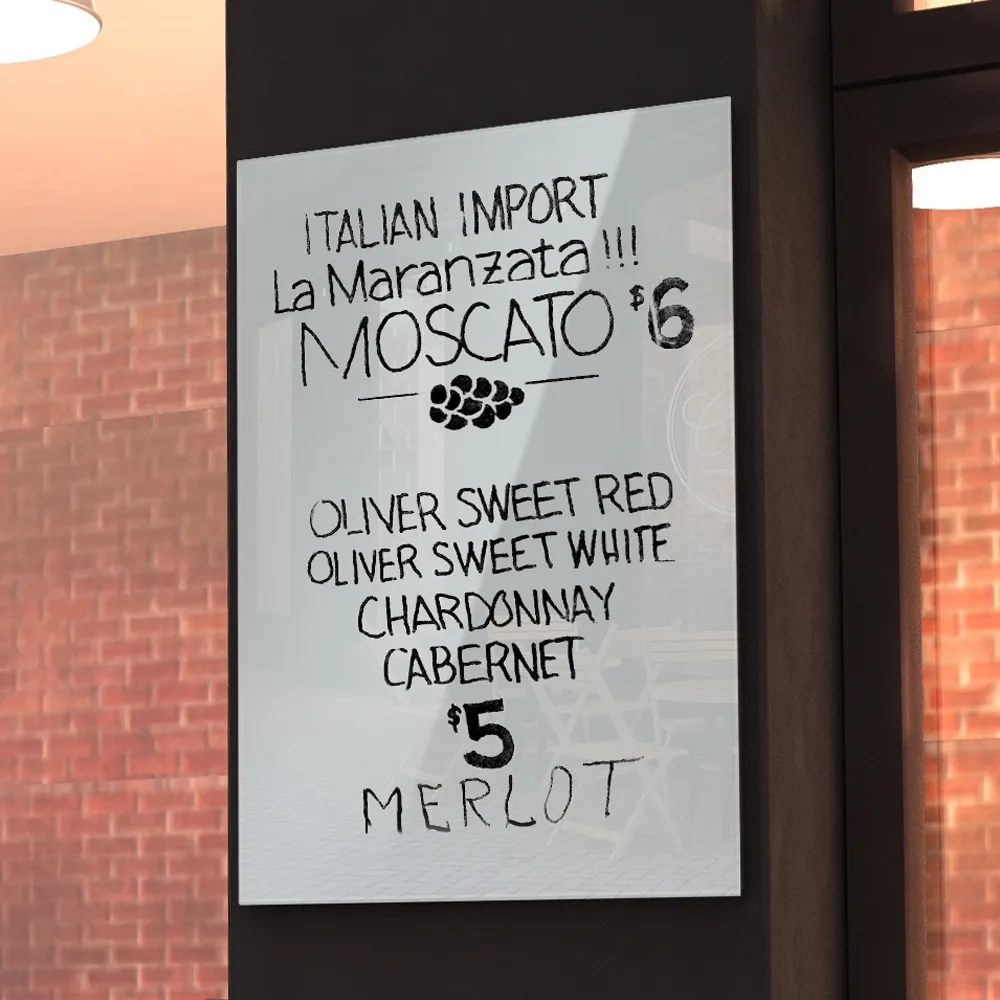 ITALIAN IMPORT
La Maranzata !!!
MOSCATO $6
OLIVER SWEET RED
OLIVER SWEET WHITE
CHARDONNAY
CABERNET
$5
MERLOT